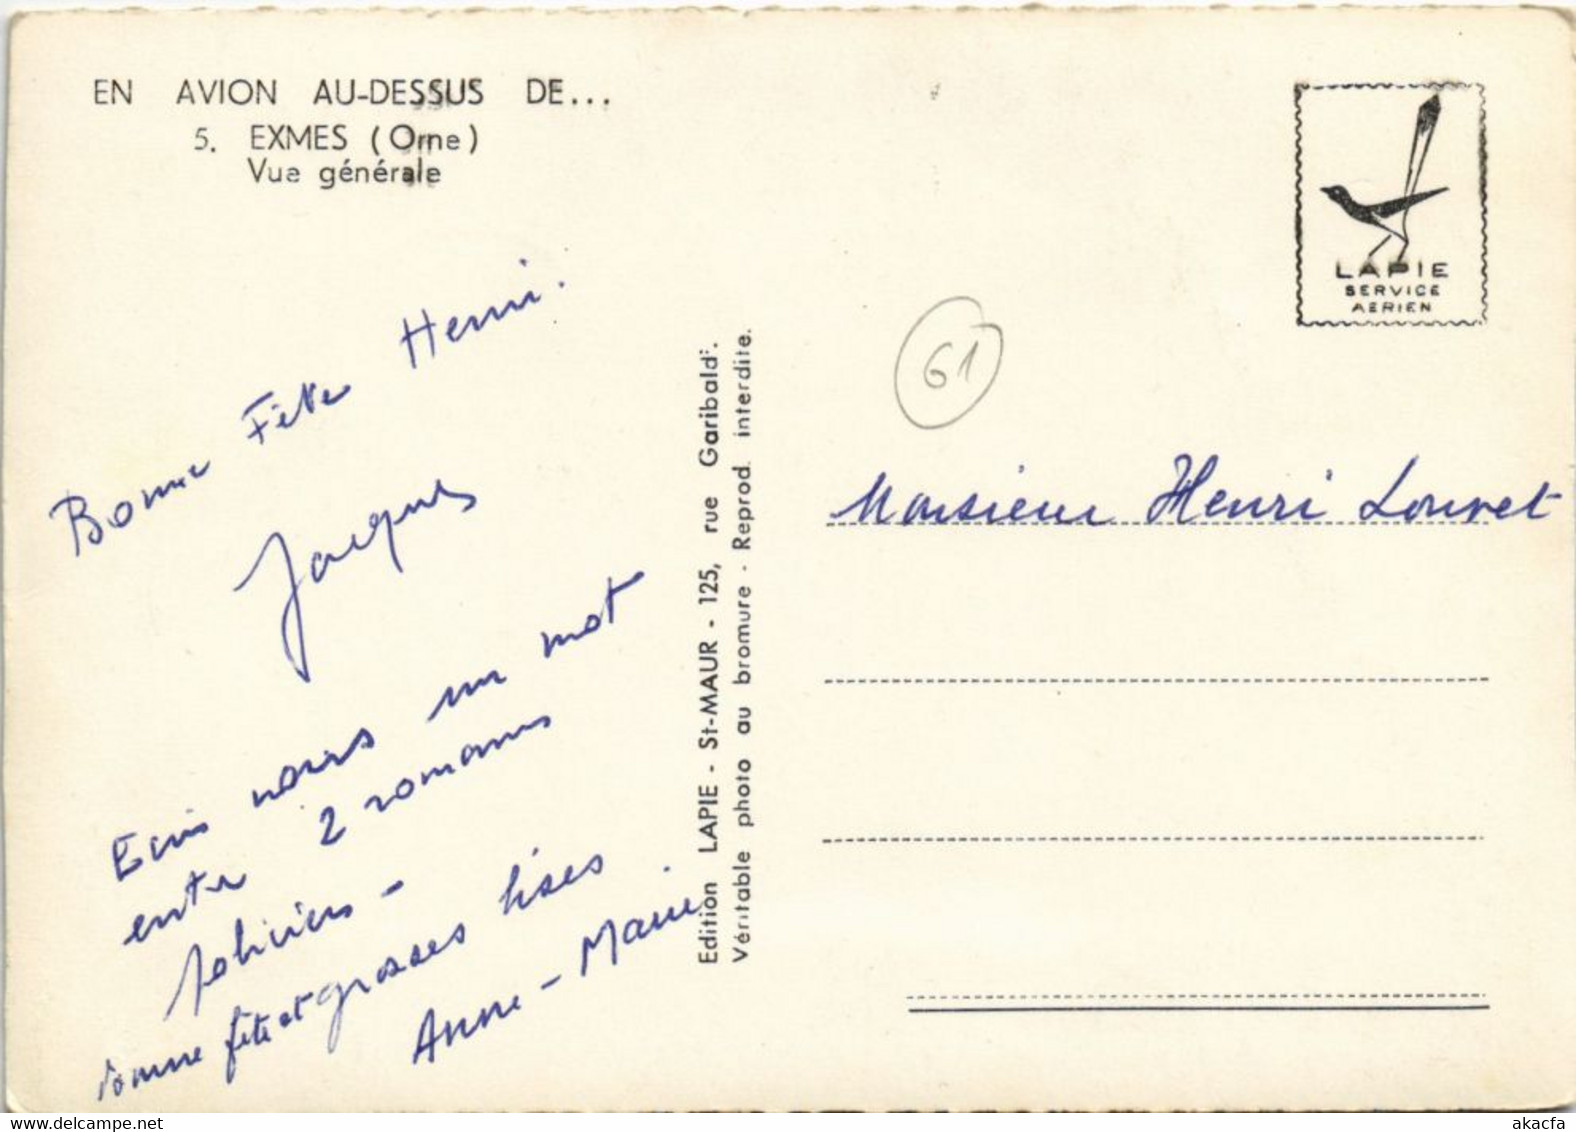 EN AVION AU-DESSUS DE...
5. EXMES (Orne)
Vue générale
LAPIE
SERVICE
AERIEN
61
Bonne Fête Henri.
Jacques
Ecris nous un mot
entre 2 romans
policiers -
bonne fête et grosses bises
Anne-Marie
Edition LAPIE - St-MAUR - 125, rue Garibaldi.
Véritable photo au bromure - Reprod. interdite.
Monsieur Henri Louvet
www.delcampe.net
akacfa